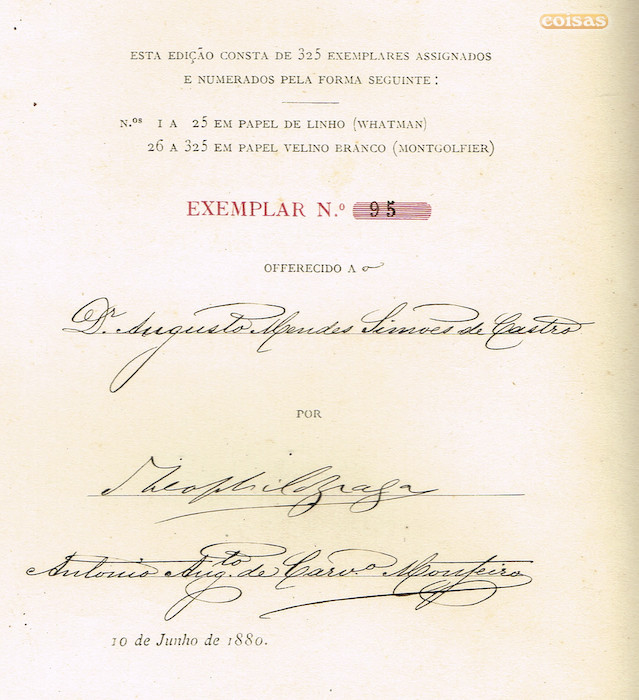 coisas
ESTA EDIÇÃO CONSTA DE 325 EXEMPLARES ASSIGNADOS
E NUMERADOS PELA FORMA SEGUINTE:
N.ºˢ 1 A 25 EM PAPEL DE LINHO (WHATMAN)
26 A 325 EM PAPEL VELINO BRANCO (MONTGOLFIER)
EXEMPLAR N.º 95
OFFERECIDO A o
Dr. Augusto Mendes Simões de Castro
POR
Theophilo Braga
Antonio Aug.to de Carv.o Monteiro
10 de Junho de 1880.